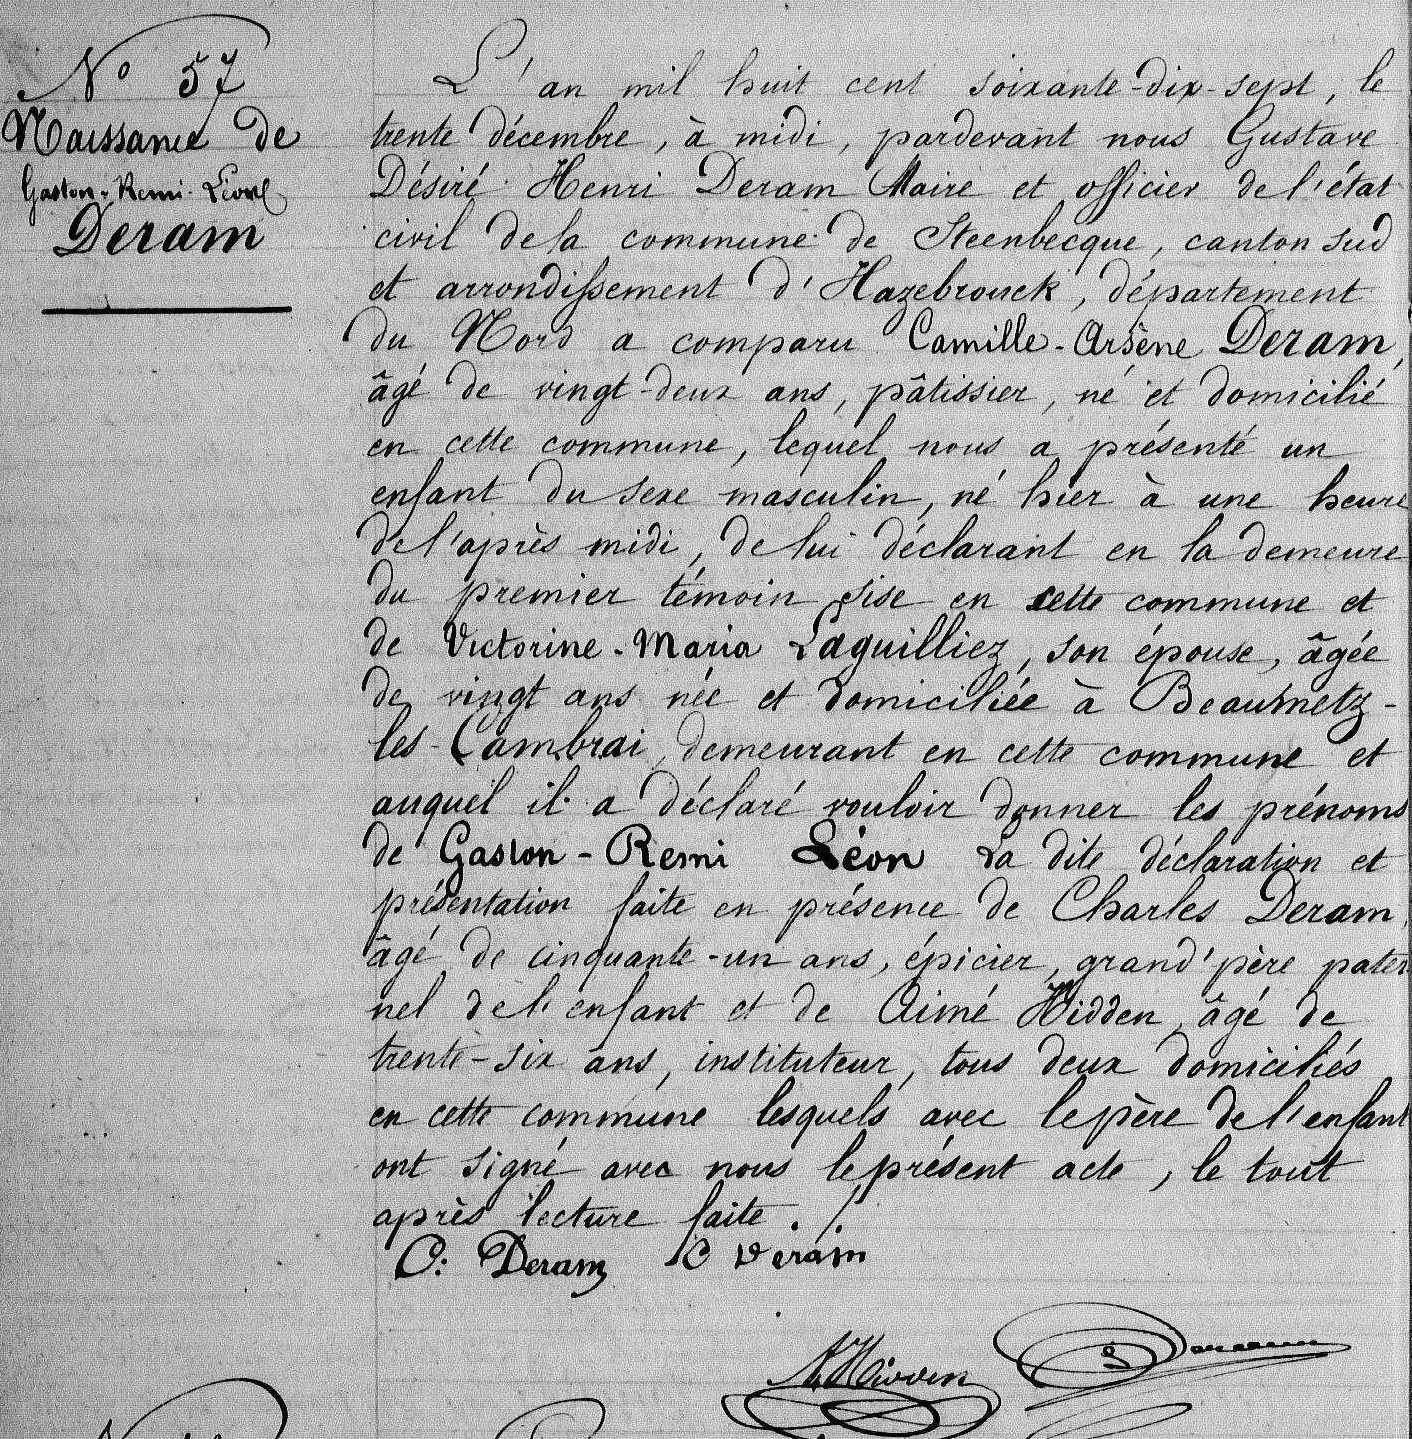 N° 57
Naissance de
Gaston-Remi-Léon
Deram
L'an mil huit cent soixante-dix-sept, le
trente décembre, à midi, pardevant nous Gustave
Désiré Henri Deram Maire et officier de l'état
civil de la commune de Steenbecque, canton sud
et arrondissement d'Hazebrouck, département
du Nord a comparu Camille-Arsène Deram,
âgé de vingt-deux ans, pâtissier, né et domicilié
en cette commune, lequel nous a présenté un
enfant du sexe masculin, né hier à une heure
de l'après midi, de lui déclarant en la demeure
du premier témoin sise en cette commune et
de Victorine-Maria Laguilliez, son épouse, âgée
de vingt ans née et domiciliée à Beaumetz-
les-Cambrai, demeurant en cette commune et
auquel il a déclaré vouloir donner les prénoms
de Gaston-Remi Léon La dite déclaration et
présentation faite en présence de Charles Deram,
âgé de cinquante-un ans, épicier, grand'père pater
nel de l'enfant et de Aimé Hidden, âgé de
trente-six ans, instituteur, tous deux domiciliés
en cette commune lesquels avec le père de l'enfant
ont signé avec nous le présent acte, le tout
après lecture faite ./.
C: Deram C Deram
A Hidden G Deram